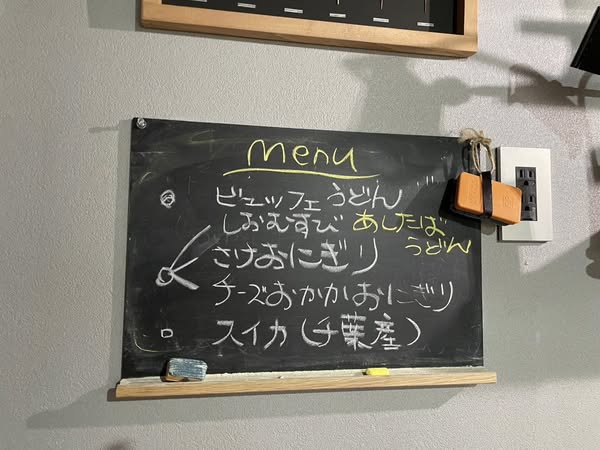 menu
ビュッフェうどん
しおむすび あしたば
うどん
さけおにぎり
チーズおかかおにぎり
スイカ(千葉産)